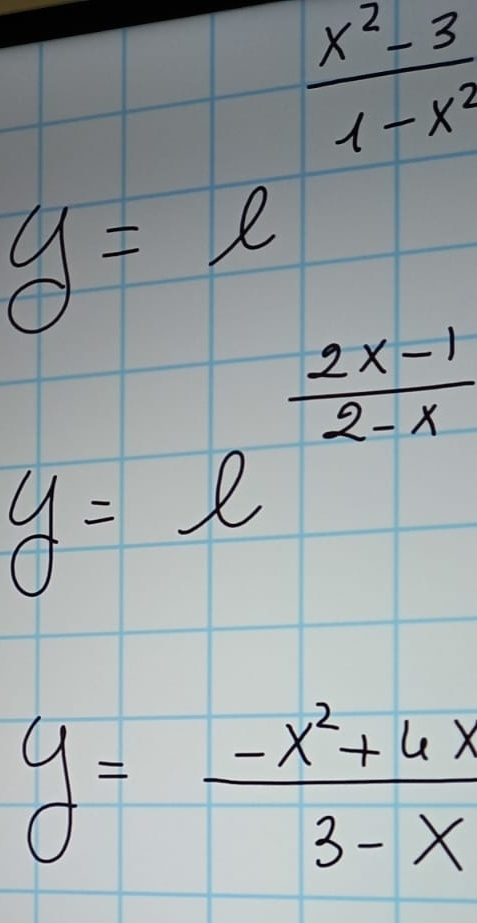 y = e^((x² - 3)/(1 - x²))
y = e^((2x - 1)/(2 - x))
y = (-x² + 4x)/(3 - x)